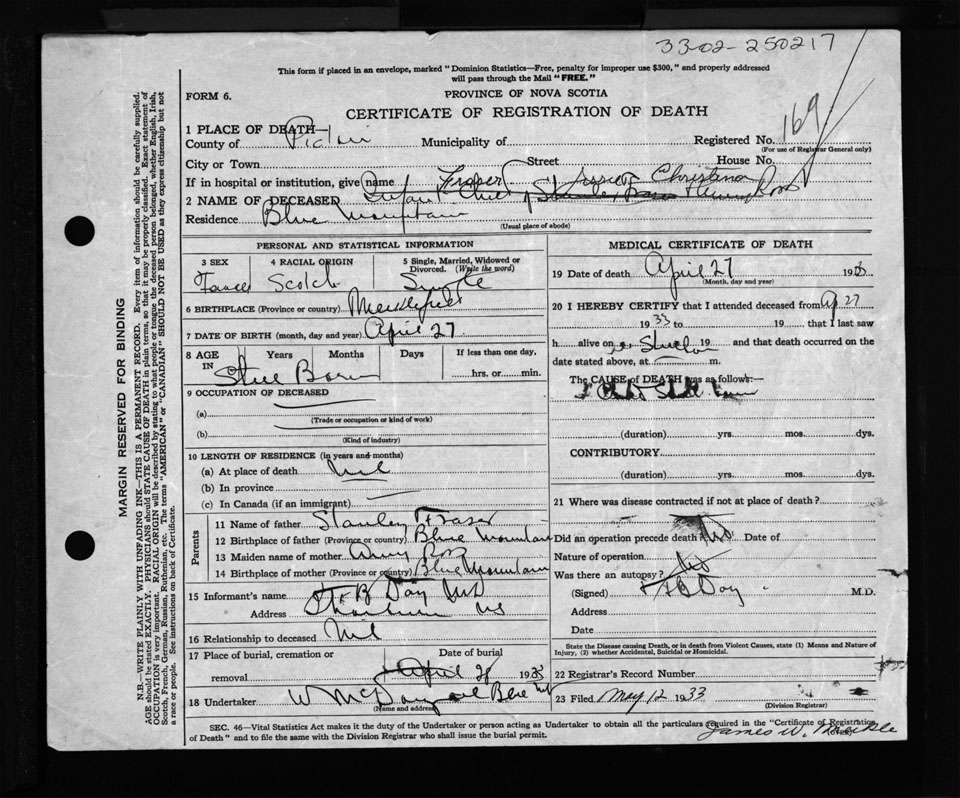 33-02-250217
This form if placed in an envelope, marked "Dominion Statistics—Free, penalty for improper use $300," and properly addressed
will pass through the Mail "FREE."
FORM 6.
PROVINCE OF NOVA SCOTIA
CERTIFICATE OF REGISTRATION OF DEATH
1 PLACE OF DEATH—
County of Pictou Municipality of Registered No. 169
(For use of Registrar General only)
City or Town Street House No.
If in hospital or institution, give name Fraser Jessie Christina
2 NAME OF DECEASED Infant Child Ross
Residence Blue Mountain
(Usual place of abode)
PERSONAL AND STATISTICAL INFORMATION
3 SEX 4 RACIAL ORIGIN 5 Single, Married, Widowed or
Divorced. (Write the word)
Scotch Single
6 BIRTHPLACE (Province or country)
7 DATE OF BIRTH (month, day and year) April 27
8 AGE IN Years Months Days If less than one day,
hrs. or min.
Still Born
9 OCCUPATION OF DECEASED
(a)
(Trade or occupation or kind of work)
(b)
(Kind of industry)
10 LENGTH OF RESIDENCE (in years and months)
(a) At place of death Nil
(b) In province
(c) In Canada (if an immigrant)
Parents
11 Name of father Stanley Fraser
12 Birthplace of father (Province or country) Blue Mountain
13 Maiden name of mother Ross
14 Birthplace of mother (Province or country) Blue Mountain
15 Informant's name F B Day MD
Address NS
16 Relationship to deceased Nil
17 Place of burial, cremation or Date of burial
removal April 28 1933
18 Undertaker W McDonald Blue Mt
(Name and address)
MEDICAL CERTIFICATE OF DEATH
19 Date of death April 27 1933
(Month, day and year)
20 I HEREBY CERTIFY that I attended deceased from Ap 27
1933 to 19 that I last saw
h alive on 19 and that death occurred on the
date stated above, at m.
The CAUSE of DEATH was as follows:—
(duration) yrs. mos. dys.
CONTRIBUTORY
(duration) yrs. mos. dys.
21 Where was disease contracted if not at place of death?
Did an operation precede death No Date of
Nature of operation
Was there an autopsy? No
(Signed) F B Day M.D.
Address
Date
State the Disease causing Death, or in death from Violent Causes, state (1) Means and Nature of
Injury, (2) whether Accidental, Suicidal or Homicidal.
22 Registrar's Record Number
23 Filed May 12 1933
(Division Registrar)
James W.
SEC. 46—Vital Statistics Act makes it the duty of the Undertaker or person acting as Undertaker to obtain all the particulars required in the "Certificate of Registration
of Death" and to file the same with the Division Registrar who shall issue the burial permit.
MARGIN RESERVED FOR BINDING
N.B.—WRITE PLAINLY WITH UNFADING INK—THIS IS A PERMANENT RECORD. Every item of information should be carefully supplied.
AGE should be stated EXACTLY. PHYSICIANS should STATE CAUSE OF DEATH in plain terms, so that it may be properly classified. Exact statement of
OCCUPATION is very important. RACIAL ORIGIN will be described by stating to what people or tongue the deceased person belonged, whether English, Irish,
Scotch, French, German, Russian, Ruthenian, etc. The terms "AMERICAN" or "CANADIAN" SHOULD NOT BE USED as they express citizenship but not
a race or people. See instructions on back of Certificate.